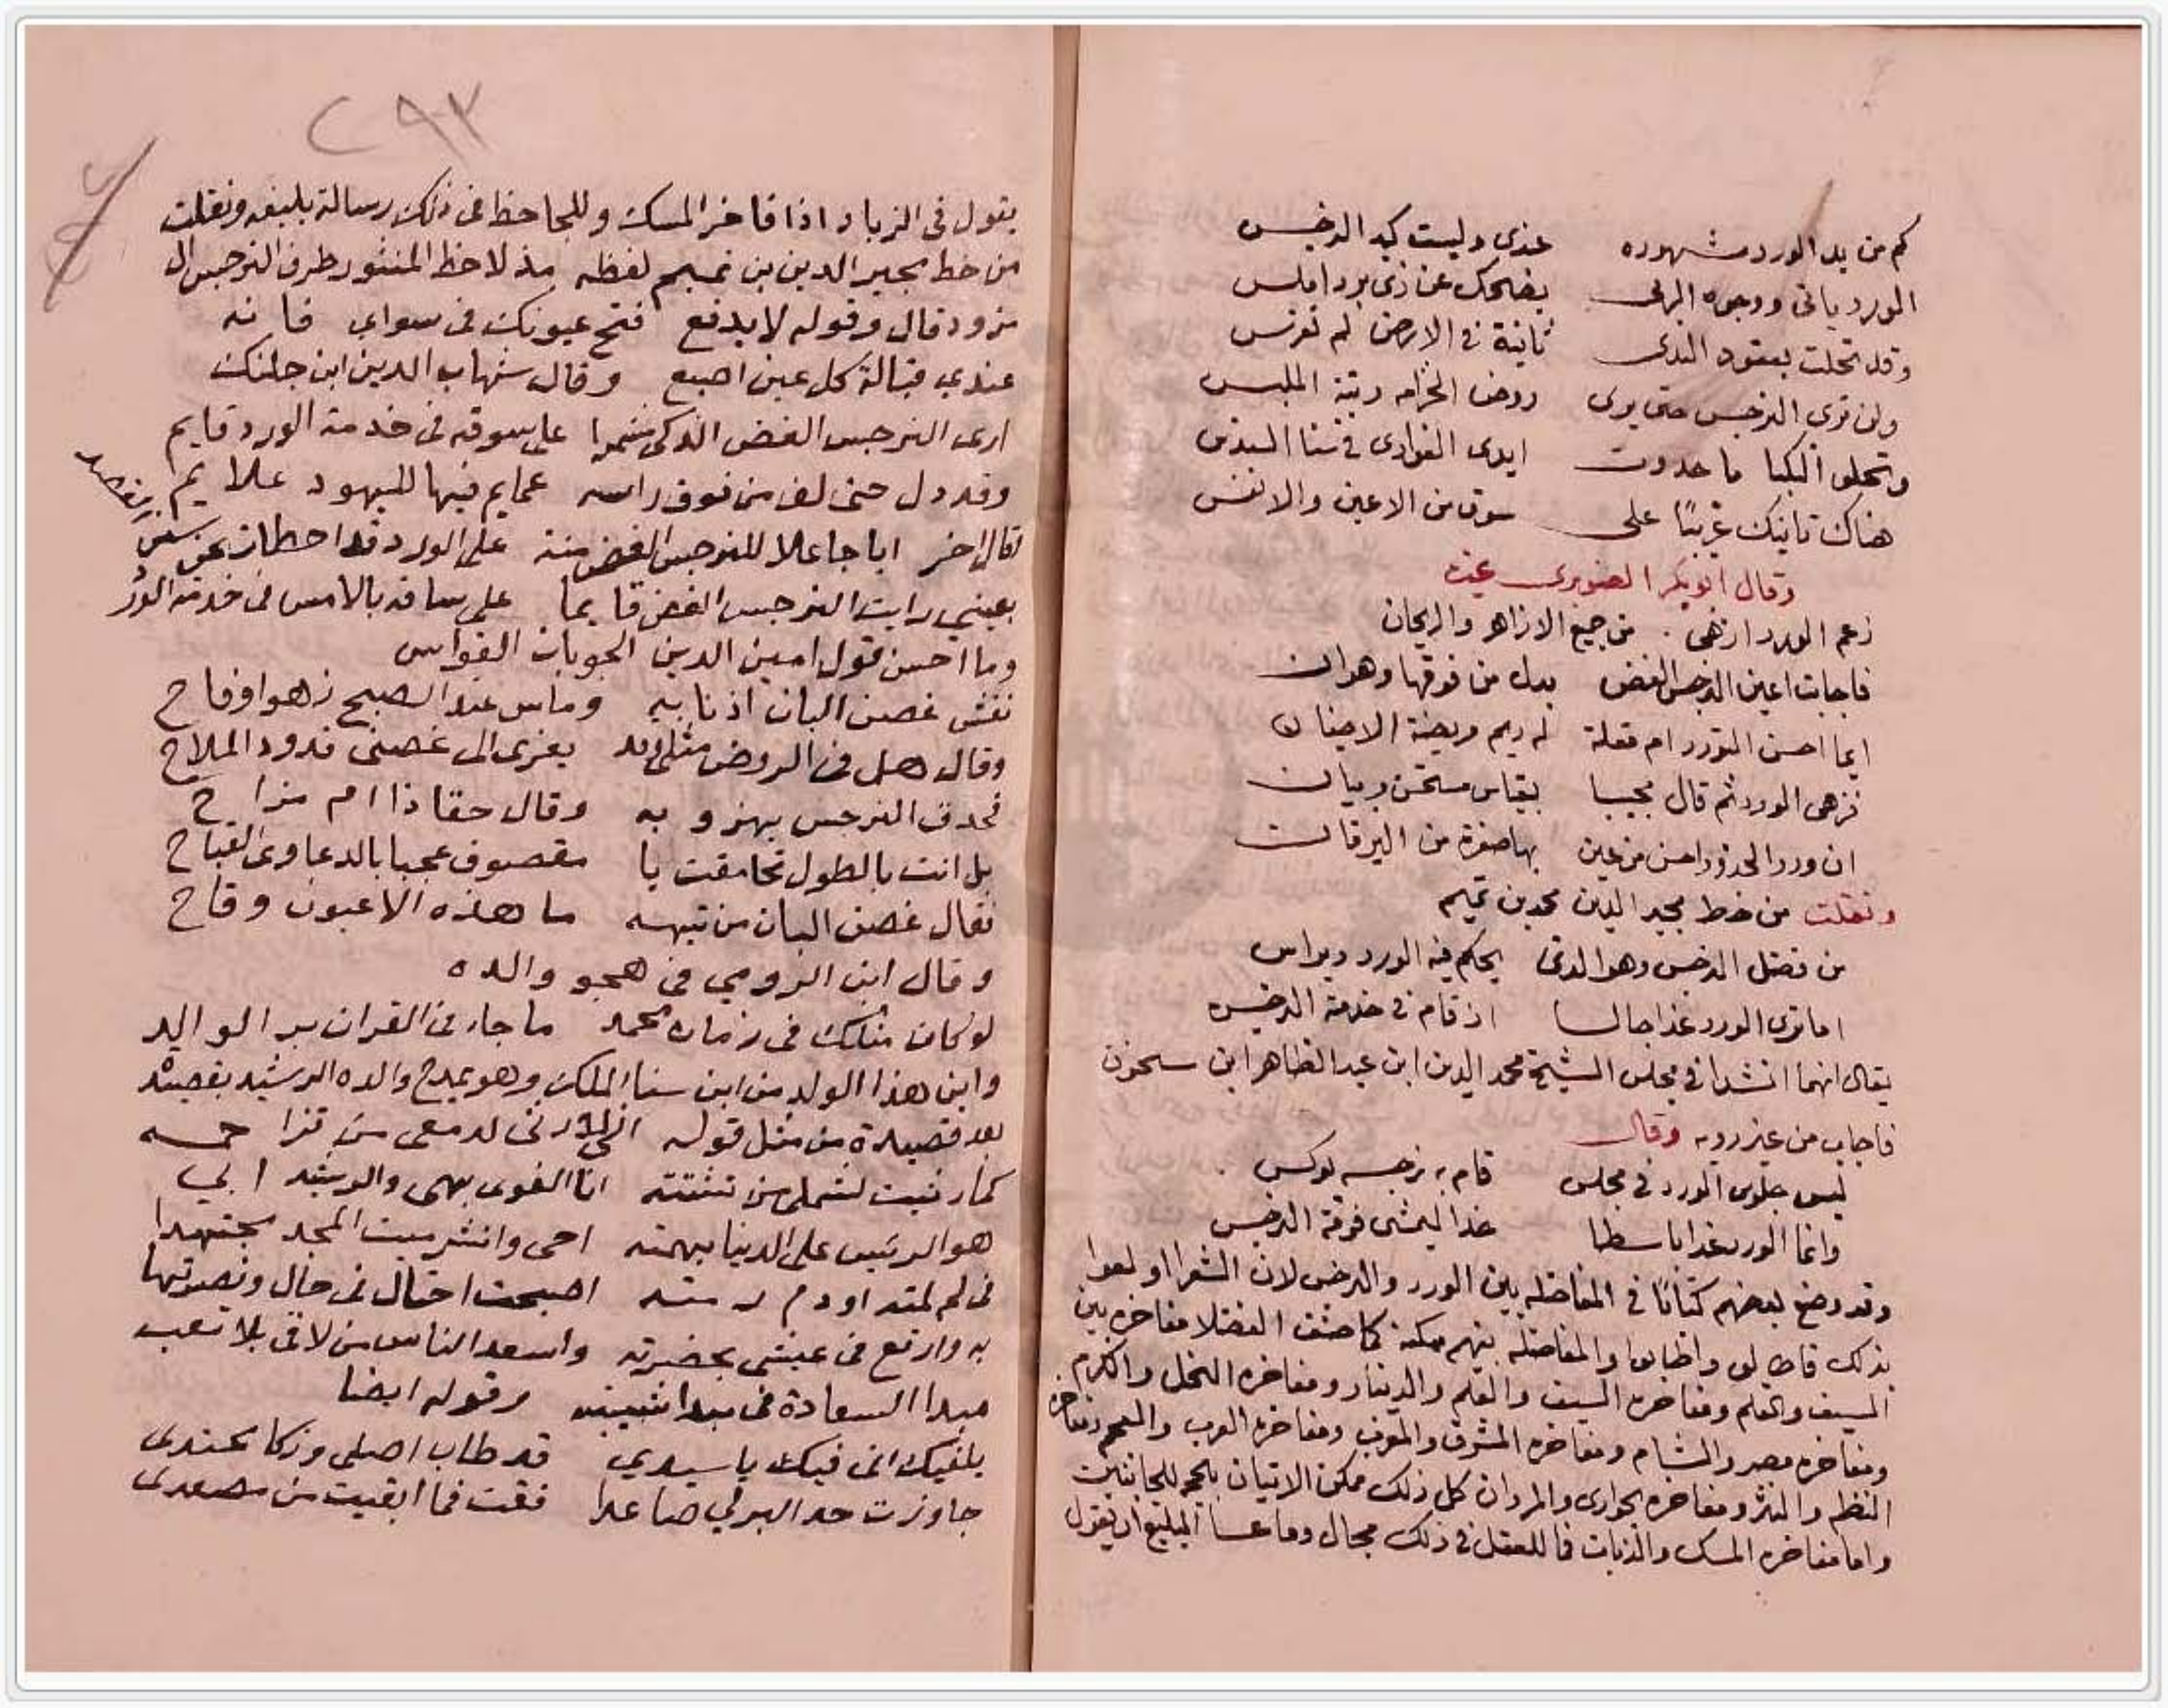 كم من يد الورد مشهوره عندى وليست كيد النرجس
الورد ياتى ووجوه الربى يضحك عن ذى برد املس
وقد تحلت بعقود الندى ثانية فى الارض لم تغرس
ولن ترى النرجس حتى يرى روض الخزامه رثة الملبس
وتحلق ما حدوت ايدى الغوادى فى سنا السندس
هناك تاتيك غريبًا على سوق من الاعين والانفس
وقال ابو بكر الصنوبرى
زعم الورد ازهى من جميع الازاهر والريحان
فاجابت اعين النرجس الغض بدل من فوقها وهوان
ايما احسن التورد ام مقلة ريم مريضة الاجفان
فزهى الورد ثم قال مجيبا بقياس مستحسن وبيان
ان ورد الخدود احسن من عين بها صفرة من اليرقان
ونقلت من خط مجير الدين محمد بن تميم
من فضل النرجس وهو الذى يحكم فيه الورد ويراس
اما ترى الورد غدا جالسا اذ قام فى خدمة النرجس
يقال انهما انشدا فى مجلس الشيخ محمد الدين ابن عبد الظاهر ابن سحنون
فاجاب من غير رويه وقال
ليس جلوس الورد فى مجلس قام به نرجسه يوكس
وانما الورد غدا باسطا خدا ليمشى فوقه النرجس
وقد وضع بعضهم كتابًا فى المفاضله بين الورد والنرجس لان الشعرا اولعوا
بذلك فاطالوا واطابوا والمفاضله بينهم ممكنه كما صنف الفضلا مفاخره بين
السيف والقلم ومفاخره السيف والقلم والدينار ومفاخره النخل والكرم
ومفاخره مصر والشام ومفاخره المشرق والمغرب ومفاخره العرب والعجم ومفاخره
النظم والنثر ومفاخره الجوارى والمردان كل ذلك ممكن الاتيان بالحجه للجانبين
واما مفاخره المسك والزباد فما للعقل فى ذلك مجال وما عسا البليغ ان يقول
٢٩٣
يقول فى الزباد اذا فاخر المسك وللجاحظ فى ذلك رسالة بليغه ونقلت
من خط مجير الدين بن تميم لفظه مذ لاحظ المنثور طرف النرجس ال
مزود قال وقوله لا يدفع فتح عيونك فى سواي فانه
عندي قبالة كل عين اصبع وقال شهاب الدين ابن جلنك
ارى النرجس الغض الذكى مشمرا على سوقه فى خدمة الورد قايم
وقد دل حتى لف من فوق راسه عمايم فيها لليهود علايم
فقال اخر ايا جاعلا للنرجس الغض منة على الورد قد اخطات عن
بعينى رايت النرجس الغض قايما على ساقه بالامس فى خدمة الورد
وما احسن قول امين الدين الجوبان القواس
نفش غصن البان اذنابه وماس عند الصبح زهوا وفاح
وقال هل فى الروض مثلى وقد يعزى الى غصنى قدود الملاح
فحدق النرجس يهزو به وقال حقا ذا ام مزاح
بل انت بالطول تحامقت يا مقصوف عجبا بالدعاوى القباح
فقال غصن البان من تيهه ما هذه الاعيون وقاح
وقال ابن الرومي فى هجو والده
لو كان مثلك فى زمان محمد ما جاء فى القران بر الوالد
واين هذا الولد من ابن سنا الملك وهو يمدح والده الرشيد بقصيدة
بعد قصيدة من مثل قوله
كما رثيت لشملى من تشتته انا الغوى بهى والرشيد ابي
هو الرئيس على الدنيا بهمته احى وانشر ميت المجد مجتهدا
اصبحت اختال فى حال ونصرتها
به وارتع فى عيشى بحضرته واسعد الناس من لاقى بلا تعب
مبدا السعادة فى مبدا شبيبته وقوله ايضا
يلفيك انى فيك يا سيدي قد طاب اصلى وزكا محتدى
جاوزت حد البر بي صاعدا فقت فما ابقيت من مصعدى